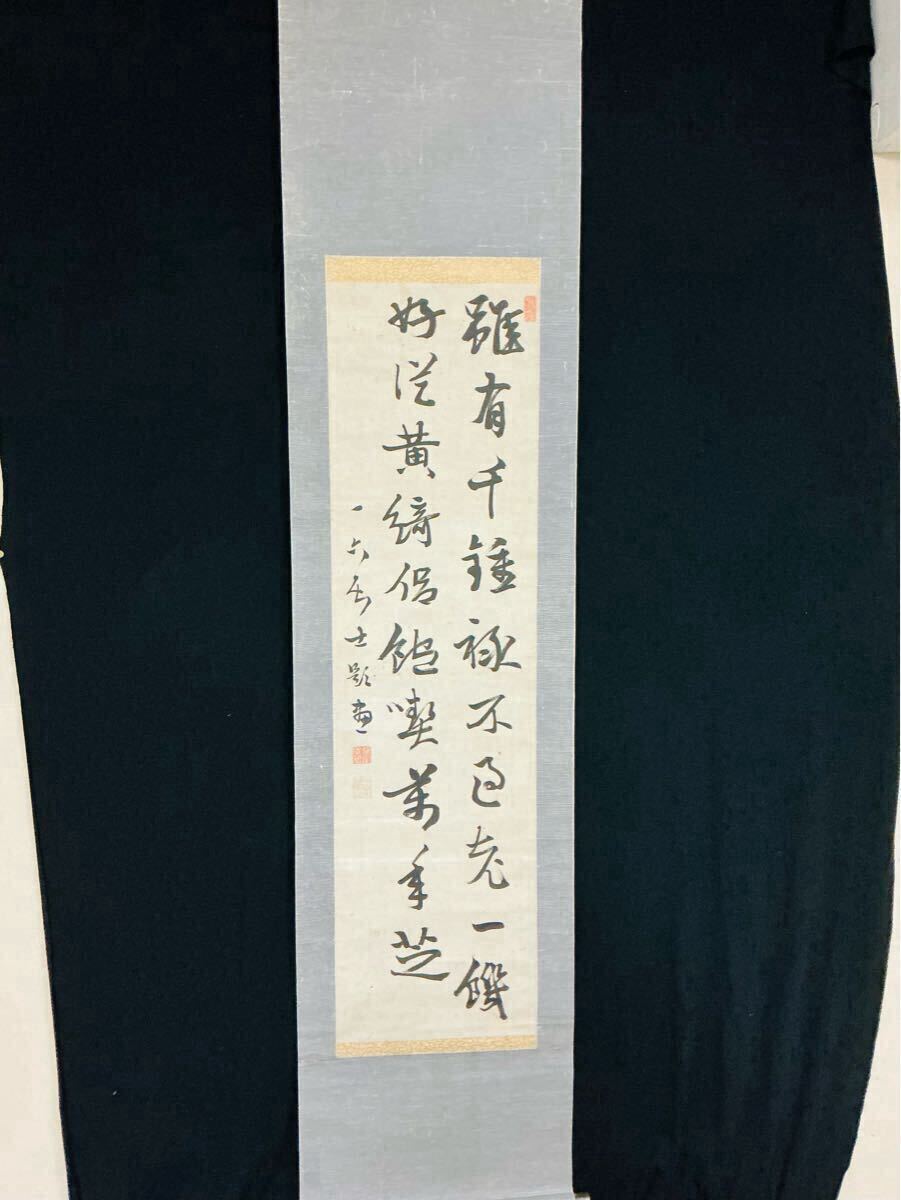 雖有千鍾祿不過充一饑
好從黃綺侶飽喫萬年芝
一六居士題畫